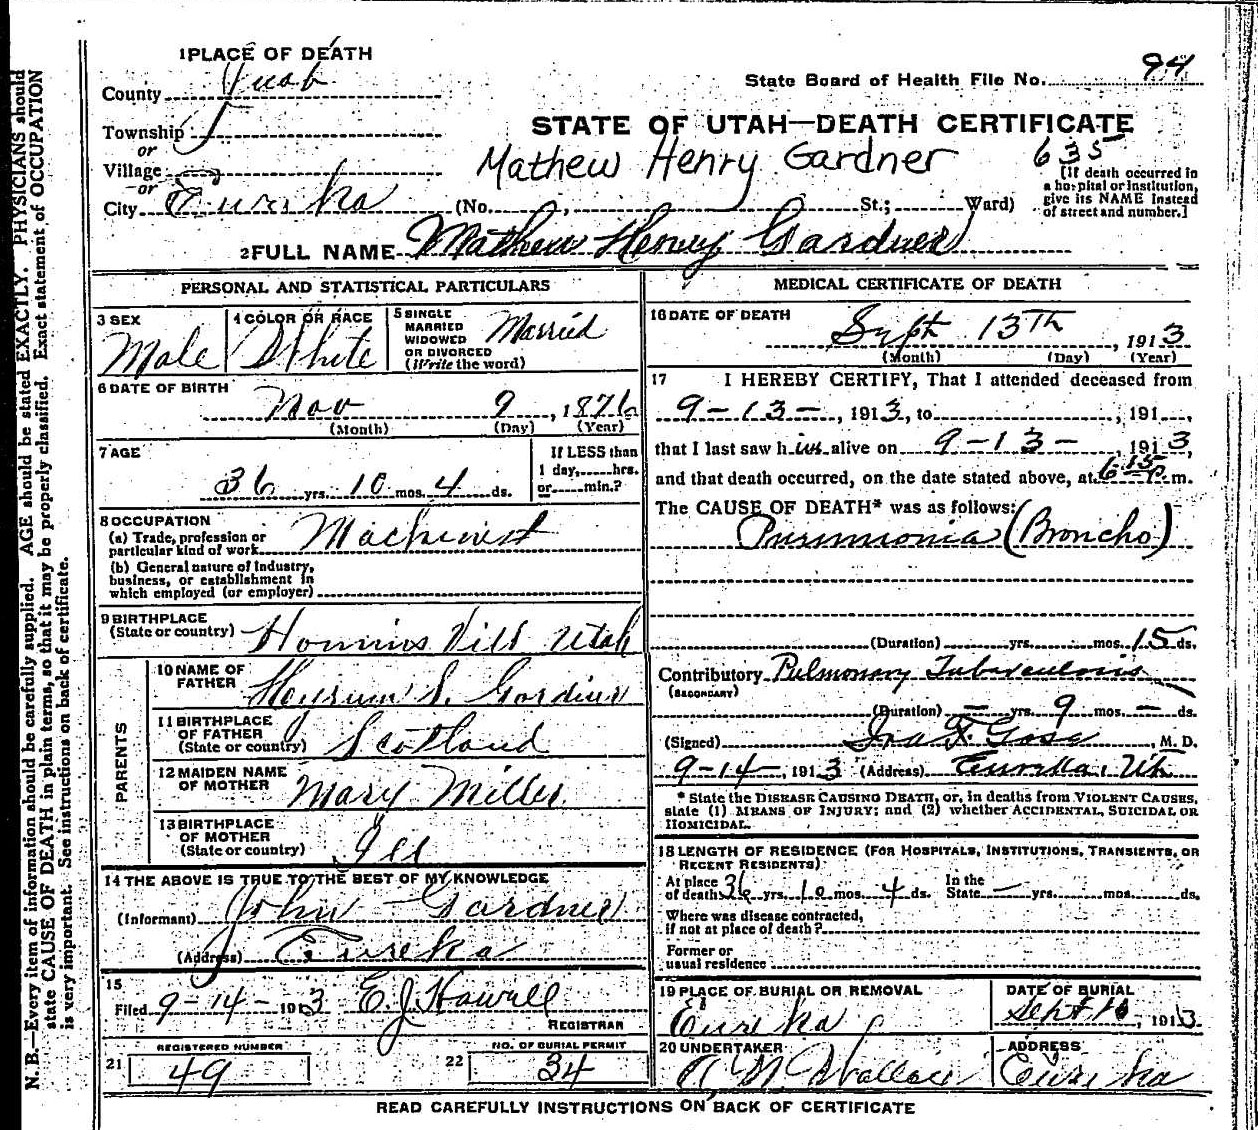 1 PLACE OF DEATH
County Juab
State Board of Health File No. 94
Township
or
Village
or
City Eureka
STATE OF UTAH—DEATH CERTIFICATE
Mathew Henry Gardner 635
[If death occurred in
a hospital or institution,
give its NAME instead
of street and number.]
(No. , St.; Ward)
2 FULL NAME Mathew Henry Gardner
PERSONAL AND STATISTICAL PARTICULARS
3 SEX
Male
4 COLOR OR RACE
White
5 SINGLE
MARRIED
WIDOWED
OR DIVORCED
(Write the word)
Married
6 DATE OF BIRTH
Nov 9, 1876
(Month) (Day) (Year)
7 AGE
36 yrs. 10 mos. 4 ds.
If LESS than
1 day, hrs.
or min.?
8 OCCUPATION
(a) Trade, profession or
particular kind of work Machinist
(b) General nature of Industry,
business, or establishment in
which employed (or employer)
9 BIRTHPLACE
(State or country) Utah
PARENTS
10 NAME OF
FATHER Gardner
11 BIRTHPLACE
OF FATHER
(State or country) Scotland
12 MAIDEN NAME
OF MOTHER Mary Miller
13 BIRTHPLACE
OF MOTHER
(State or country) Ill
14 THE ABOVE IS TRUE TO THE BEST OF MY KNOWLEDGE
(Informant) John Gardner
(Address) Eureka
15
Filed 9-14-1913 E. J. Howell
REGISTRAR
REGISTERED NUMBER
21 49
NO. OF BURIAL PERMIT
22 34
MEDICAL CERTIFICATE OF DEATH
16 DATE OF DEATH
Sept 13TH, 1913
(Month) (Day) (Year)
17 I HEREBY CERTIFY, That I attended deceased from
9-13-, 1913, to , 191 ,
that I last saw him alive on 9-13-, 1913,
and that death occurred, on the date stated above, at 6-15 p. m.
The CAUSE OF DEATH* was as follows:
Pneumonia (Broncho)
(Duration) yrs. mos. 15 ds.
Contributory Pulmonary Tuberculosis
(SECONDARY)
(Duration) — yrs. 9 mos. — ds.
(Signed) M. D.
9-14-, 1913 (Address) Eureka, Ut
* State the DISEASE CAUSING DEATH, or, in deaths from VIOLENT CAUSES,
state (1) MEANS OF INJURY; and (2) whether ACCIDENTAL, SUICIDAL OR
HOMICIDAL.
18 LENGTH OF RESIDENCE (FOR HOSPITALS, INSTITUTIONS, TRANSIENTS, OR
RECENT RESIDENTS)
At place of death 36 yrs. 10 mos. 4 ds. In the State — yrs. mos. ds.
Where was disease contracted,
if not at place of death?
Former or
usual residence
19 PLACE OF BURIAL OR REMOVAL
Eureka
DATE OF BURIAL
Sept 16, 1913
20 UNDERTAKER
Wallace
ADDRESS
Eureka
READ CAREFULLY INSTRUCTIONS ON BACK OF CERTIFICATE
N. B.—Every item of information should be carefully supplied. AGE should be stated EXACTLY. PHYSICIANS should
state CAUSE OF DEATH in plain terms, so that it may be properly classified. Exact statement of OCCUPATION
is very important. See instructions on back of certificate.